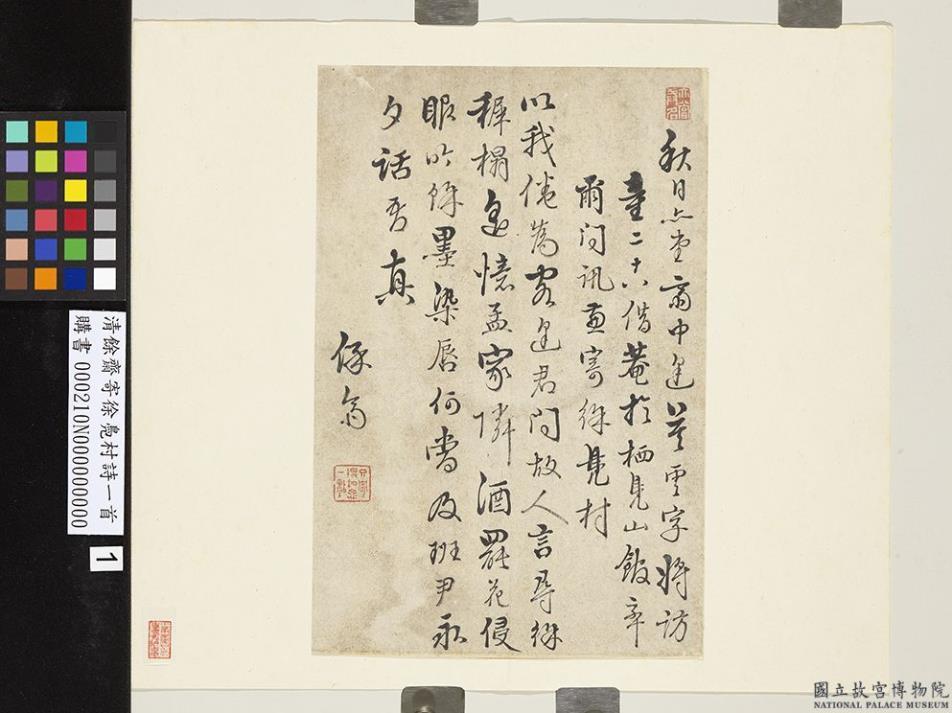 秋日亦堂齋中逢吳雲字將訪
童二十八借菴於栖鳧山飯卒
爾問訊兼寄徐鳧村
以我倦為客逢君問故人言尋徐
穉榻忽憶孟家隣酒罷花侵
眼吟餘墨染唇何當及班尹永
夕話吾真
餘齋
清餘齋寄徐鳧村詩一首
購書 000210N000000000
1
國立故宮博物院
NATIONAL PALACE MUSEUM